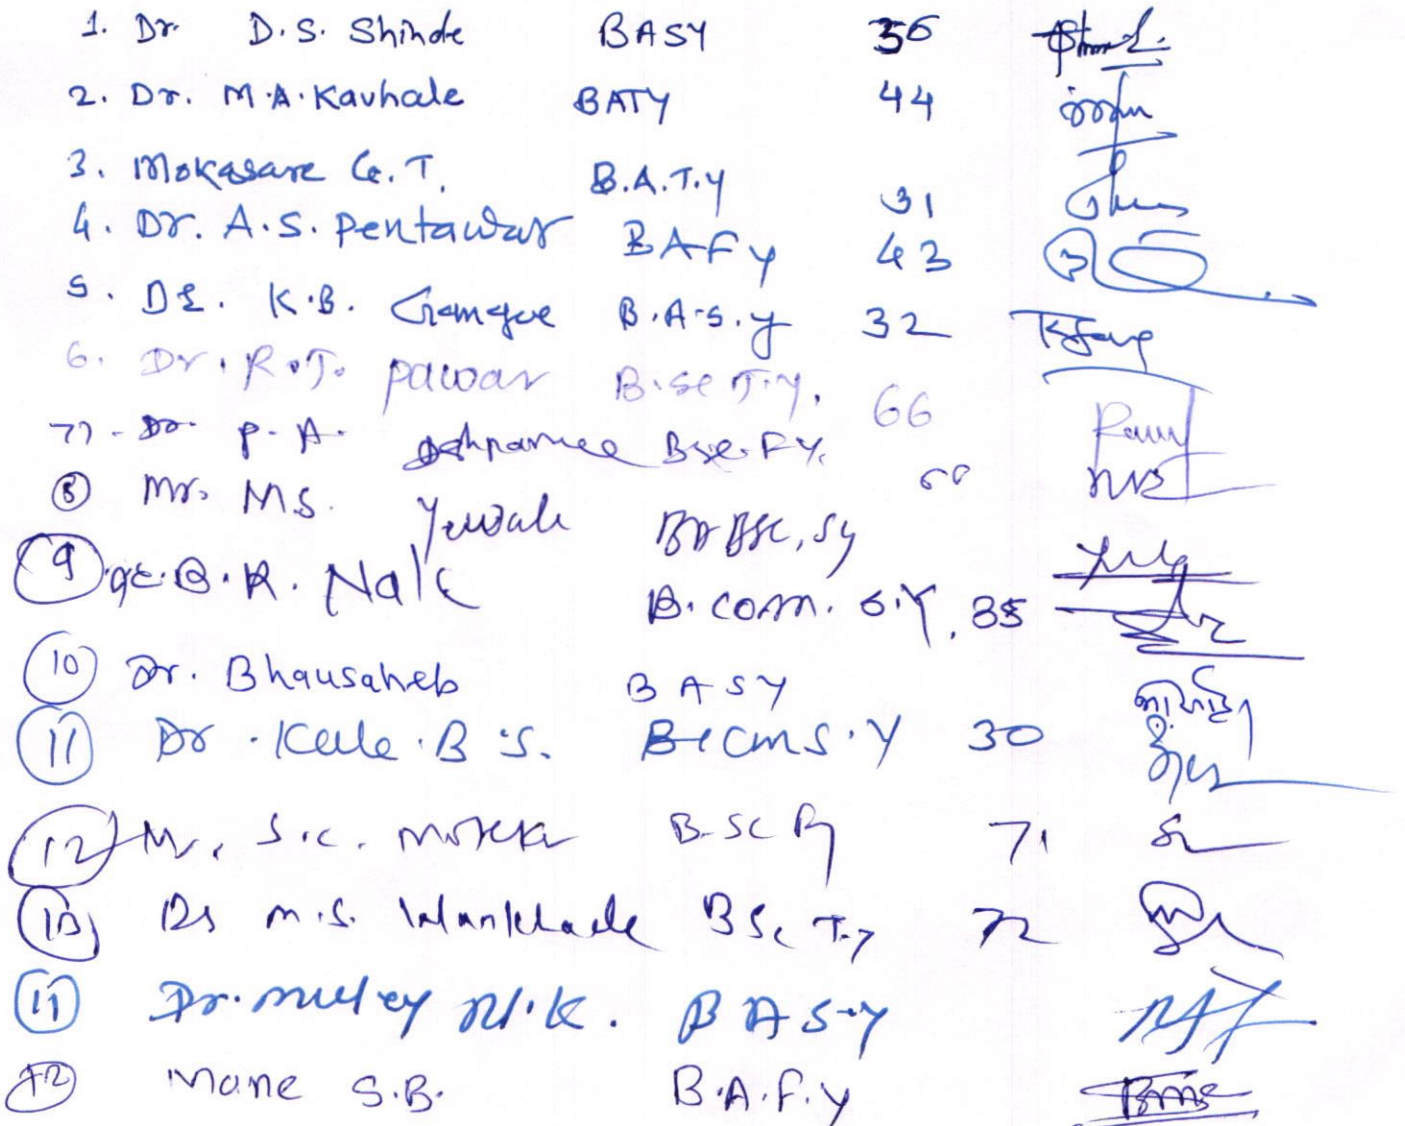 1. Dr. D.S. Shinde BASY 36
2. Dr. M.A. Kavhale BATY 44
3. Mokasare G.T. B.A.T.y 31
4. Dr. A.S. Pentawar BAFy 43
5. Dr. K.B. Gangue B.A.S.y 32
6. Dr. R.T. pawar B.Sc T.Y. 66
7) - Dr. P. A. BSc. F.Y.
8 Mr. M.S. Yewale BSc, Sy
9 B.R. Naik B.com. S.Y. 35
10 Dr. Bhausaheb BASY
11 Dr. Kale B.S. B.Com S.Y 30
12 Mr. S.C. B.Sc Fy 71
13 Dr M.S. Wankhade BSc T.y 72
11 Dr. muley N.K. BAS.y
12 Mane S.B. B.A.F.y